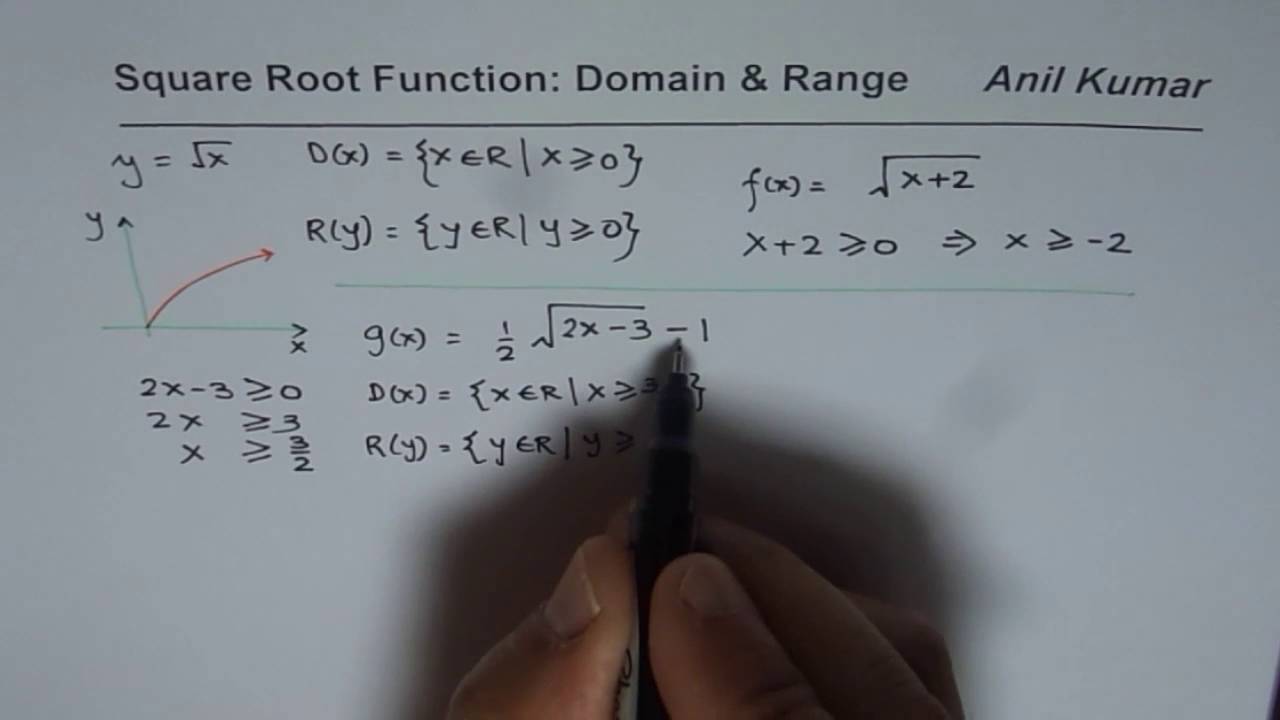 Square Root Function: Domain & Range Anil Kumar
y = √x
D(x) = {x∈R | x ≥ 0}
R(y) = {y∈R | y ≥ 0}
y
x
f(x) = √(x+2)
x+2 ≥ 0 ⇒ x ≥ -2
g(x) = 1/2 √(2x-3) - 1
2x-3 ≥ 0
2x ≥ 3
x ≥ 3/2
D(x) = {x∈R | x ≥ 3 }
R(y) = {y∈R | y ≥